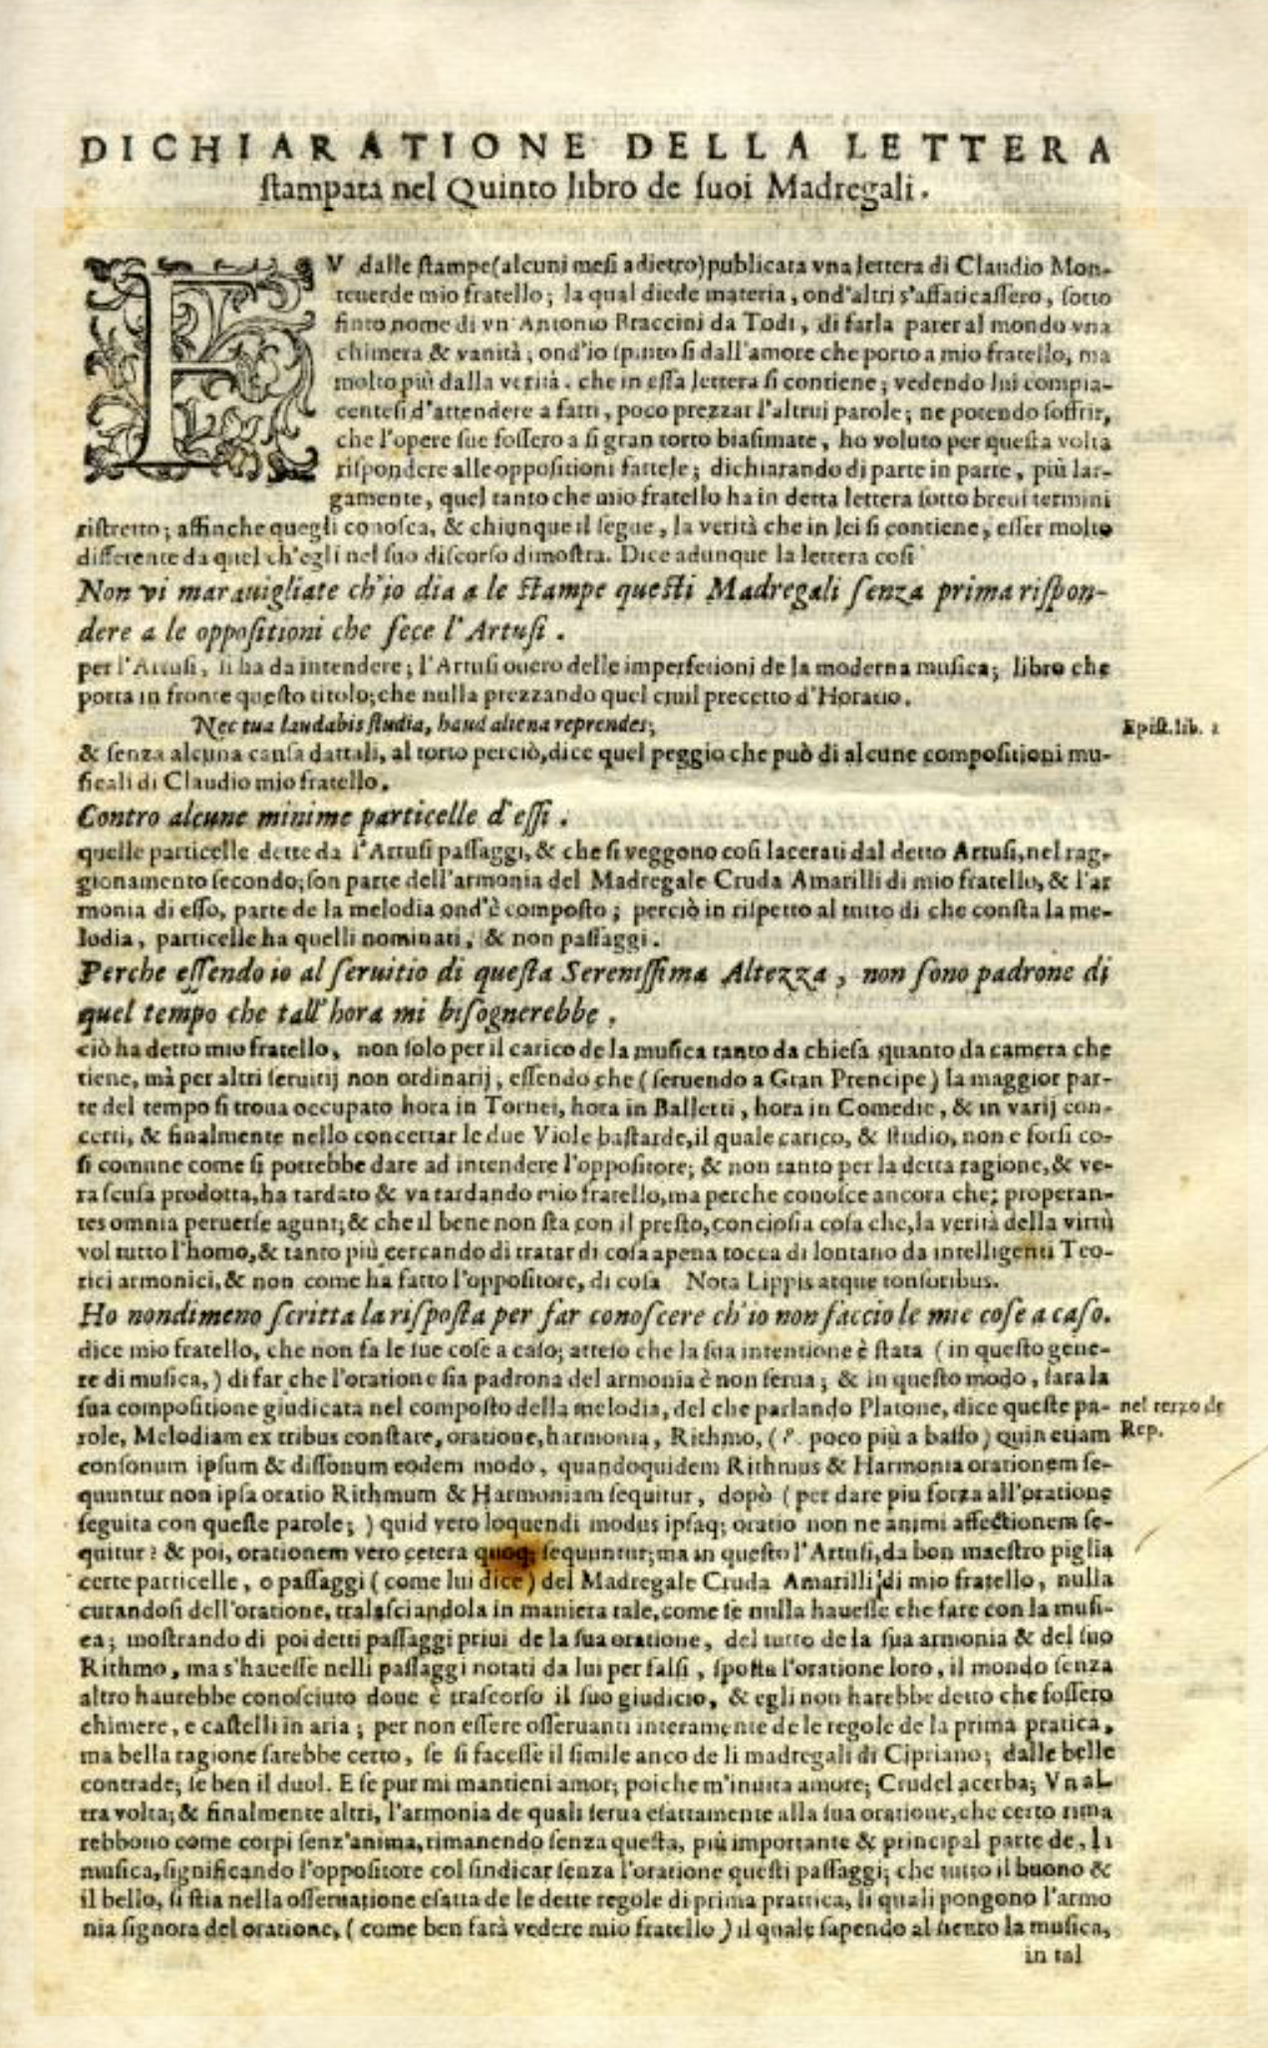 DICHIARATIONE DELLA LETTERA
ſtampata nel Quinto libro de ſuoi Madregali.
FV dalle ſtampe (alcuni meſi a dietro) publicata vna lettera di Claudio Mon-
teuerde mio fratello; la qual diede materia, ond'altri s'affaticaſſero, ſotto
finto nome di vn Antonio Braccini da Todi, di farla parer al mondo vna
chimera & vanità; ond'io ſpinto ſi dall'amore che porto a mio fratello, ma
molto più dalla verità. che in eſſa lettera ſi contiene; vedendo lui compia-
centeſi d'attendere a fatti, poco prezzar l'altrui parole; ne potendo ſoffrir,
che l'opere ſue foſſero a ſi gran torto biaſimate, ho voluto per queſta volta
riſpondere alle oppoſitioni fattele; dichiarando di parte in parte, più lar-
gamente, quel tanto che mio fratello ha in detta lettera ſotto breui termini
riſtretto; affinche quegli conoſca, & chiunque il ſegue, la verità che in lei ſi contiene, eſſer molto
differente da quel ch'egli nel ſuo diſcorſo dimoſtra. Dice adunque la lettera coſi
Non vi marauigliate ch'io dia a le ſtampe queſti Madregali ſenza prima riſpon-
dere a le oppoſitioni che fece l'Artuſi.
per l'Artuſi, ſi ha da intendere; l'Artuſi ouero delle imperfetioni de la moderna muſica; libro che
porta in fronte queſto titolo; che nulla prezzando quel ciuil precetto d'Horatio.
Nec tua laudabis ſtudia, haud aliena reprendes;
Epiſt. lib. 1
& ſenza alcuna cauſa dattali, al torto perciò, dice quel peggio che può di alcune compoſitioni mu-
ſicali di Claudio mio fratello.
Contro alcune minime particelle d'eſſi.
quelle particelle dette da l'Artuſi paſſaggi, & che ſi veggono coſi lacerati dal detto Artuſi, nel rag-
gionamento ſecondo; ſon parte dell'armonia del Madregale Cruda Amarilli di mio fratello, & l'ar
monia di eſſo, parte de la melodia ond'è compoſto; perciò in riſpetto al tutto di che conſta la me-
lodia, particelle ha quelli nominati, & non paſſaggi.
Perche eſſendo io al ſeruitio di queſta Sereniſſima Altezza, non ſono padrone di
quel tempo che tall'hora mi biſognerebbe.
ciò ha detto mio fratello, non ſolo per il carico de la muſica tanto da chieſa quanto da camera che
tiene, mà per altri ſeruitij non ordinarij, eſſendo che (ſeruendo a Gran Prencipe) la maggior par-
te del tempo ſi troua occupato hora in Tornei, hora in Balletti, hora in Comedie, & in varij con-
certi, & finalmente nello concertar le due Viole baſtarde, il quale carico, & ſtudio, non e forſi co-
ſi comune come ſi potrebbe dare ad intendere l'oppoſitore; & non tanto per la detta ragione, & ve-
ra ſcuſa prodotta, ha tardato & va tardando mio fratello, ma perche conoſce ancora che; properan-
tes omnia peruerſe agunt; & che il bene non ſta con il preſto, concioſia coſa che, la verità della virtù
vol tutto l'homo, & tanto più cercando di tratar di coſa apena tocca di lontano da intelligenti Teo-
rici armonici, & non come ha fatto l'oppoſitore, di coſa Nota Lippis atque tonſoribus.
Ho nondimeno ſcritta la riſpoſta per far conoſcere ch'io non faccio le mie coſe a caſo.
dice mio fratello, che non fa le ſue coſe a caſo; atteſo che la ſua intentione è ſtata (in queſto gene-
re di muſica,) di far che l'oratione ſia padrona del armonia è non ſerua; & in queſto modo, ſara la
ſua compoſitione giudicata nel compoſto della melodia, del che parlando Platone, dice queſte pa-
nel terzo de
Rep.
role, Melodiam ex tribus conſtare, oratione, harmonia, Rithmo, (&. poco più a baſſo) quin etiam
conſonum ipſum & diſſonum eodem modo, quandoquidem Rithmus & Harmonia orationem ſe-
quuntur non ipſa oratio Rithmum & Harmoniam ſequitur, dopò (per dare piu forza all'oratione
ſeguita con queſte parole;) quid vero loquendi modus ipſaq; oratio non ne animi affectionem ſe-
quitur? & poi, orationem vero cetera quoq; ſequuntur; ma in queſto l'Artuſi, da bon maeſtro piglia
certe particelle, o paſſaggi (come lui dice) del Madregale Cruda Amarilli di mio fratello, nulla
curandoſi dell'oratione, tralaſciandola in maniera tale, come ſe nulla haueſſe che fare con la muſi-
ca; moſtrando di poi detti paſſaggi priui de la ſua oratione, del tutto de la ſua armonia & del ſuo
Rithmo, ma s'haueſſe nelli paſſaggi notati da lui per falſi, ſpoſta l'oratione loro, il mondo ſenza
altro haurebbe conoſciuto doue è traſcorſo il ſuo giudicio, & egli non harebbe detto che foſſero
chimere, e caſtelli in aria; per non eſſere oſſeruanti interamente de le regole de la prima pratica,
ma bella ragione ſarebbe certo, ſe ſi faceſſe il ſimile anco de li madregali di Cipriano; dalle belle
contrade; ſe ben il duol. E ſe pur mi mantieni amor; poiche m'inuita amore; Crudel acerba; Vn al-
tra volta; & finalmente altri, l'armonia de quali ſerua eſattamente alla ſua oratione, che certo rima
rebbono come corpi ſenz'anima, rimanendo ſenza queſta, più importante & principal parte de, la
muſica, ſignificando l'oppoſitore col ſindicar ſenza l'oratione queſti paſſaggi; che tutto il buono &
il bello, ſi ſtia nella oſſeruatione eſatta de le dette regole di prima prattica, li quali pongono l'armo
nia ſignora del oratione, (come ben farà vedere mio fratello) il quale ſapendo al ſicuro la muſica,
in tal